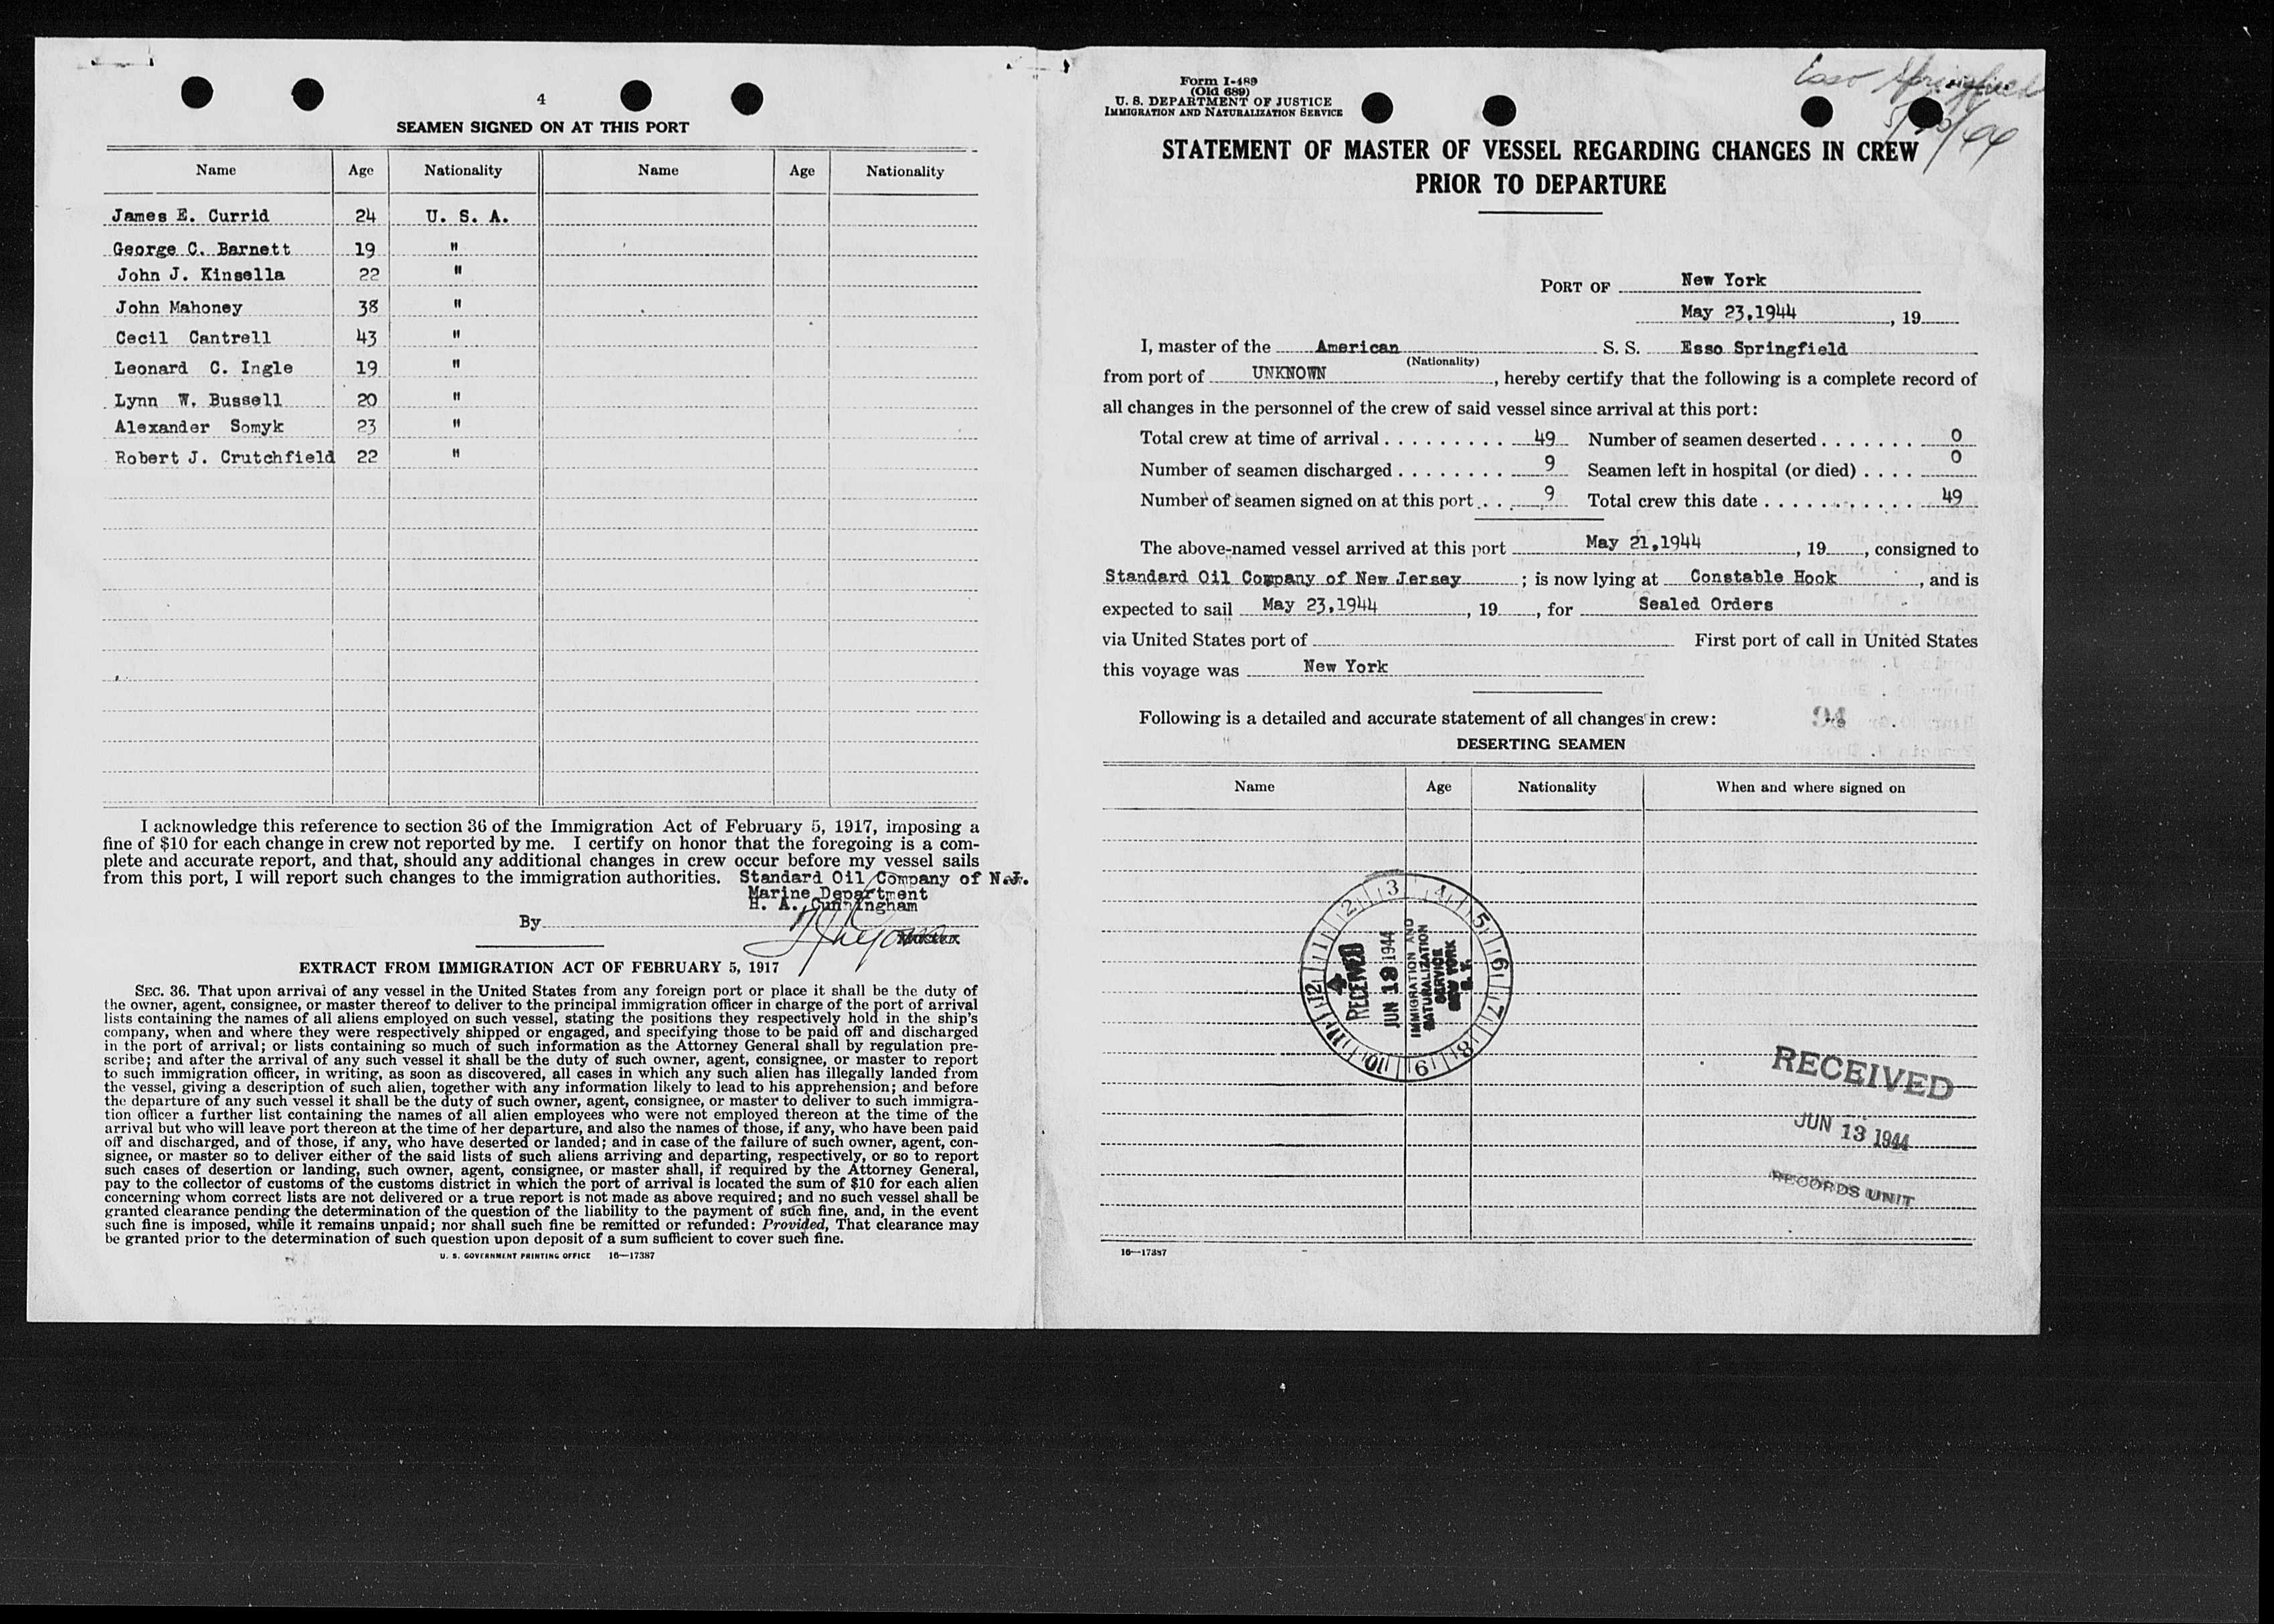 4
SEAMEN SIGNED ON AT THIS PORT
Name Age Nationality Name Age Nationality
James E. Currid 24 U. S. A.
George C. Barnett 19 "
John J. Kinsella 22 "
John Mahoney 38 "
Cecil Cantrell 43 "
Leonard C. Ingle 19 "
Lynn W. Bussell 20 "
Alexander Somyk 23 "
Robert J. Crutchfield 22 "
I acknowledge this reference to section 36 of the Immigration Act of February 5, 1917, imposing a
fine of $10 for each change in crew not reported by me. I certify on honor that the foregoing is a com-
plete and accurate report, and that, should any additional changes in crew occur before my vessel sails
from this port, I will report such changes to the immigration authorities. Standard Oil Company of N.J.
Marine Department
H. A. Cunningham
By
EXTRACT FROM IMMIGRATION ACT OF FEBRUARY 5, 1917
SEC. 36. That upon arrival of any vessel in the United States from any foreign port or place it shall be the duty of
the owner, agent, consignee, or master thereof to deliver to the principal immigration officer in charge of the port of arrival
lists containing the names of all aliens employed on such vessel, stating the positions they respectively hold in the ship's
company, when and where they were respectively shipped or engaged, and specifying those to be paid off and discharged
in the port of arrival; or lists containing so much of such information as the Attorney General shall by regulation pre-
scribe; and after the arrival of any such vessel it shall be the duty of such owner, agent, consignee, or master to report
to such immigration officer, in writing, as soon as discovered, all cases in which any such alien has illegally landed from
the vessel, giving a description of such alien, together with any information likely to lead to his apprehension; and before
the departure of any such vessel it shall be the duty of such owner, agent, consignee, or master to deliver to such immigra-
tion officer a further list containing the names of all alien employees who were not employed thereon at the time of the
arrival but who will leave port thereon at the time of her departure, and also the names of those, if any, who have been paid
off and discharged, and of those, if any, who have deserted or landed; and in case of the failure of such owner, agent, con-
signee, or master so to deliver either of the said lists of such aliens arriving and departing, respectively, or so to report
such cases of desertion or landing, such owner, agent, consignee, or master shall, if required by the Attorney General,
pay to the collector of customs of the customs district in which the port of arrival is located the sum of $10 for each alien
concerning whom correct lists are not delivered or a true report is not made as above required; and no such vessel shall be
granted clearance pending the determination of the question of the liability to the payment of such fine, and, in the event
such fine is imposed, while it remains unpaid; nor shall such fine be remitted or refunded: Provided, That clearance may
be granted prior to the determination of such question upon deposit of a sum sufficient to cover such fine.
U. S. GOVERNMENT PRINTING OFFICE 16—17387
Form I-489
(Old 689)
U. S. DEPARTMENT OF JUSTICE
IMMIGRATION AND NATURALIZATION SERVICE
Esso Springfield
STATEMENT OF MASTER OF VESSEL REGARDING CHANGES IN CREW
PRIOR TO DEPARTURE
PORT OF New York
May 23,1944, 19
I, master of the American S. S. Esso Springfield
(Nationality)
from port of UNKNOWN, hereby certify that the following is a complete record of
all changes in the personnel of the crew of said vessel since arrival at this port:
Total crew at time of arrival 49 Number of seamen deserted 0
Number of seamen discharged 9 Seamen left in hospital (or died) 0
Number of seamen signed on at this port 9 Total crew this date 49
The above-named vessel arrived at this port May 21,1944, 19, consigned to
Standard Oil Company of New Jersey; is now lying at Constable Hook, and is
expected to sail May 23,1944, 19, for Sealed Orders
via United States port of First port of call in United States
this voyage was New York
Following is a detailed and accurate statement of all changes in crew:
DESERTING SEAMEN
Name Age Nationality When and where signed on
1 2 3 4 5 6 7 8 9 10 11 12
4
RECEIVED
JUN 13 1944
IMMIGRATION AND
NATURALIZATION
SERVICE
NEW YORK
N. Y.
RECEIVED
JUN 13 1944
RECORDS UNIT
16—17387